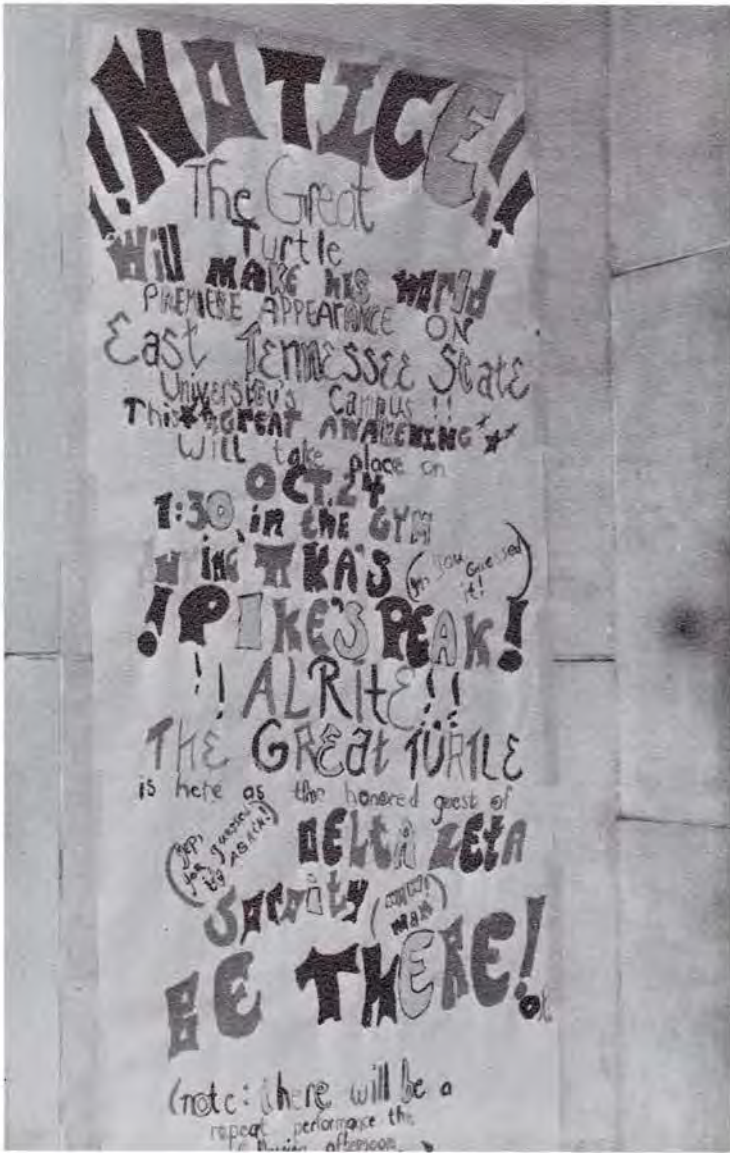 !!NOTICE!!
The Great
Turtle
Will MAKE his world
PREMIERE APPEARANCE ON
East TENNESSEE State
University's Campus !!
This **GREAT AWAKENING**
Will take place on
OCT. 24
1:30 in the GYM
ΠKA'S (yep, you guessed it!)
!PIKE'S PEAK!
!!ALRITE!!
THE GREAT TURTLE
is here as the honored guest of
(yep, you guessed it AGAIN!)
DELTA ZETA
Sorority (WOW! MAN)
BE THERE!
(note: there will be a
repeat performance the
afternoon.